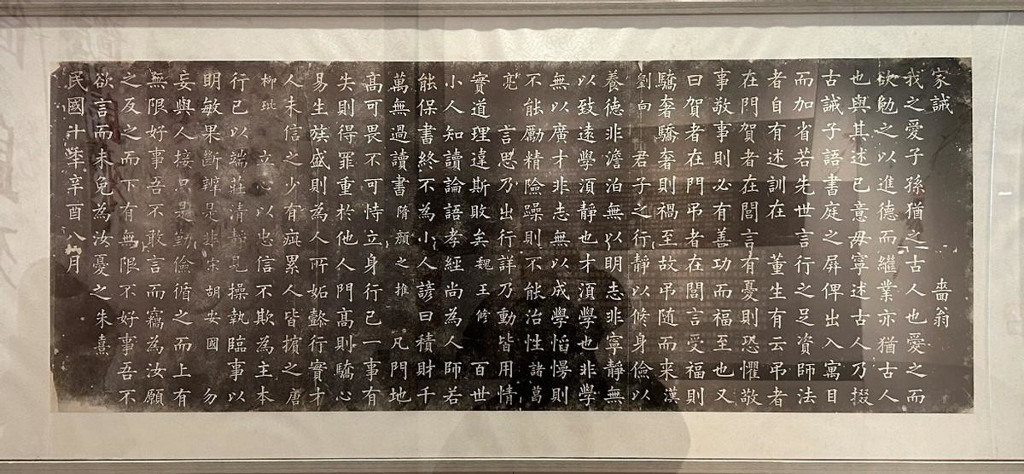 家誡　嗇翁
我之愛子孫猶之古人也愛之而
欲勉之以進德而繼業亦猶古人
也與其述己意毋寧述古人乃掇
古誡子語書庭之屏俾出入寓目
而加省若先世言行之足資師法
者自有述訓在　董生有云弔者
在門賀者在閭言有憂則恐懼敬
事敬事則必有善功而福至也又
曰賀者在門弔者在閭言受福則
驕奢驕奢則禍至故弔随而来漢
劉向　君子之行靜以修身儉以
養德非澹泊無以明志非寧靜無
以致遠學湏靜也才湏學也非學
無以廣才非志無以成學慆慢則
不能勵精險躁則不能冶性諸葛
亮　言思乃出行詳乃動皆用情
實道理違斯敗矣魏王修　百世
小人知讀論語孝經尚為人師若
能保書終不為小人諺曰積財千
萬無過讀書隋顏之推　凡門地
高可畏不可恃立身行己一事有
失則得罪重於他人門高則驕心
易生族盛則為人所妬懿行實才
人未信之少有疵累人皆摘之唐
柳玭　立心以忠信不欺為主本
行己以端莊清慎見操執臨事以
明敏果斷辨是非宋胡安國　勿
妄與人接只是勤儉循之而上有
無限好事吾不敢言而竊為汝願
之反之而下有無限不好事吾不
欲言而未免為汝憂之朱熹
民國十年辛酉八月